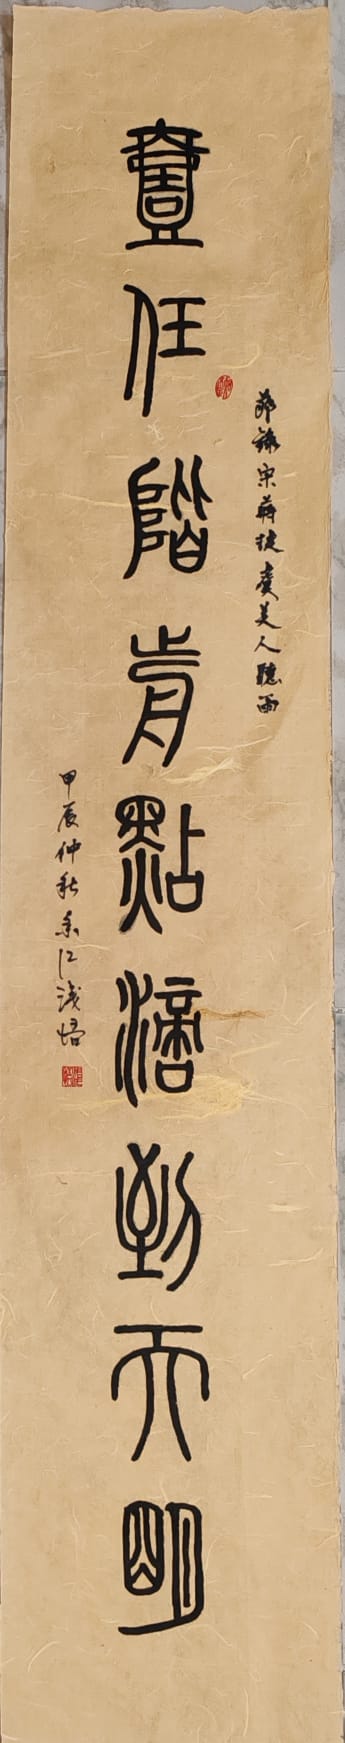 節錄宋蔣捷虞美人聽雨
壹任階前點滴到天明
甲辰仲秋香江淺悟